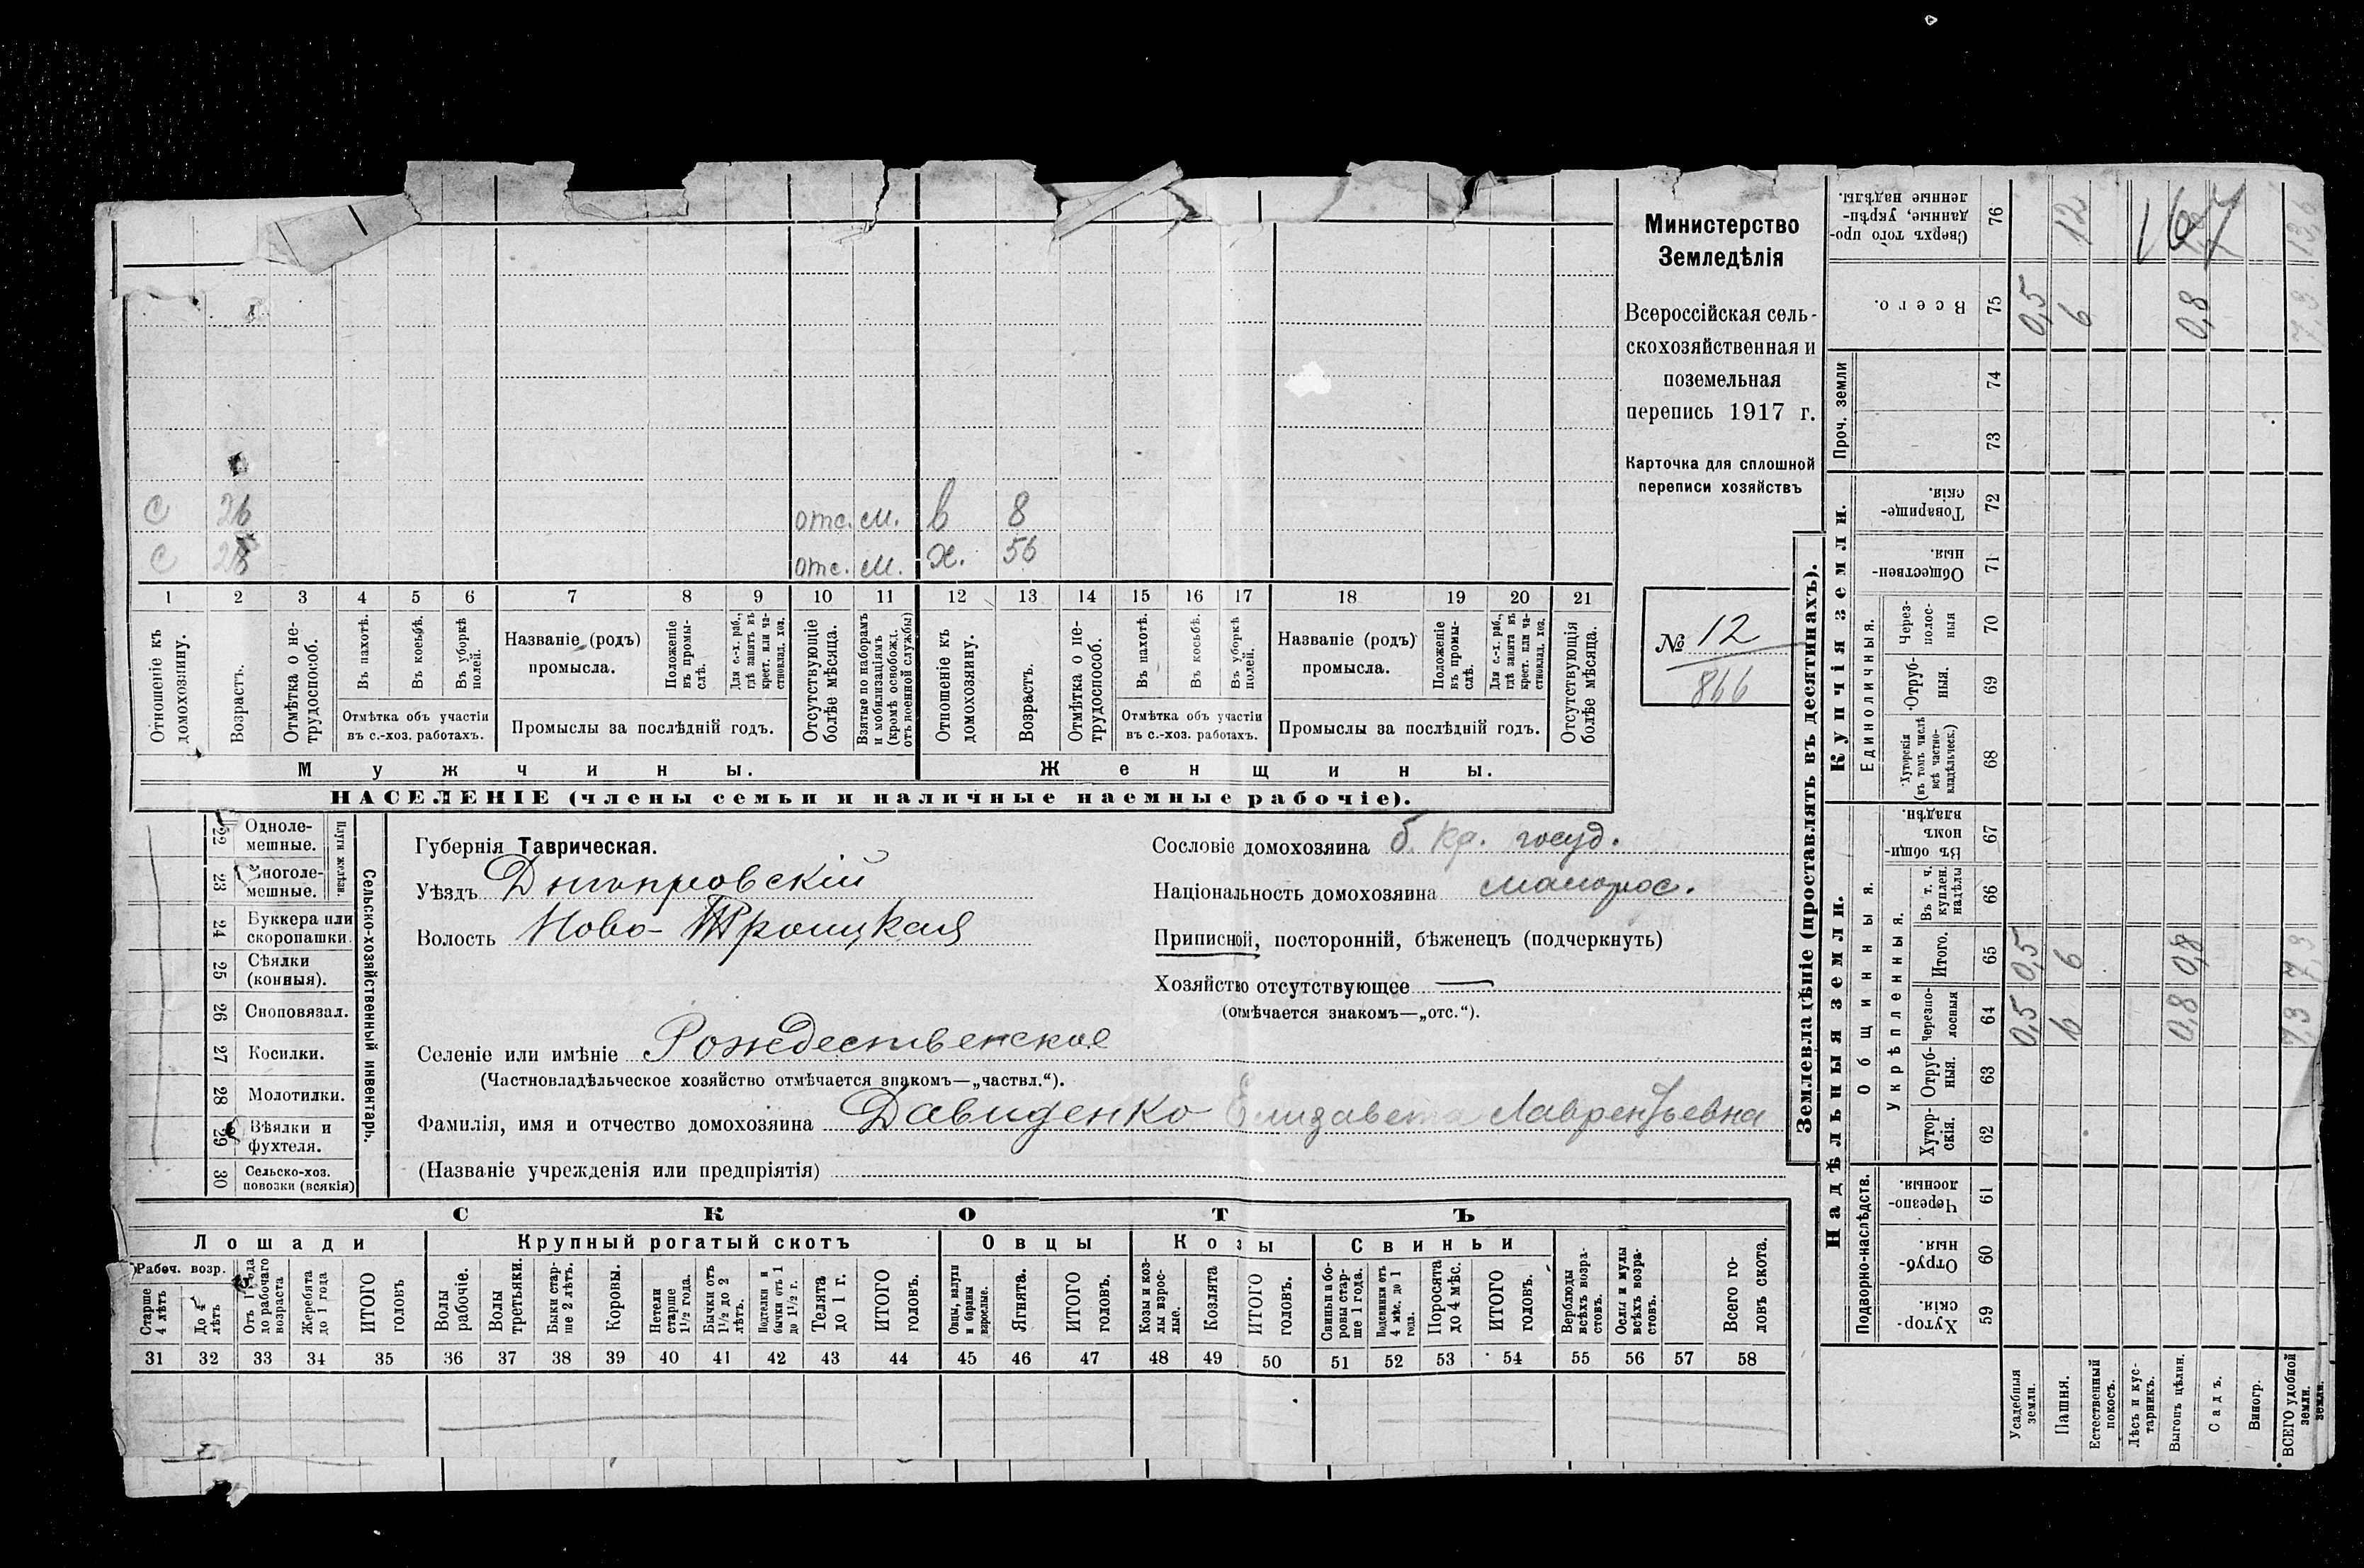 С 26 отс. м. в 8
С 28 отс. м. х. 56
1 2 3 4 5 6 7 8 9 10 11 12 13 14 15 16 17 18 19 20 21
Отношеніе къ домохозяину.
Возрастъ.
Отмѣтка о нетрудоспособ.
Въ пахотѣ.
Въ косьбѣ.
Въ уборкѣ полей.
Отмѣтка объ участіи въ с.-хоз. работахъ.
Названіе (родъ) промысла.
Положеніе въ промыслѣ.
Для с.-х. раб., гдѣ занятъ въ крест. или частновлад. хоз.
Промыслы за послѣдній годъ.
Отсутствующіе болѣе мѣсяца.
Взятые по наборамъ и мобилизаціямъ (кромѣ освобожд. отъ военной службы)
Отношеніе къ домохозяину.
Возрастъ.
Отмѣтка о нетрудоспособ.
Въ пахотѣ.
Въ косьбѣ.
Въ уборкѣ полей.
Отмѣтка объ участіи въ с.-хоз. работахъ.
Названіе (родъ) промысла.
Положеніе въ промыслѣ.
Для с.-х. раб., гдѣ занята въ крест. или частновлад. хоз.
Промыслы за послѣдній годъ.
Отсутствующія болѣе мѣсяца.
Мужчины. Женщины.
НАСЕЛЕНІЕ (члены семьи и наличные наемные рабочіе).
Министерство
Земледѣлія
Всероссійская сель-
скохозяйственная и
поземельная
перепись 1917 г.
Карточка для сплошной
переписи хозяйствъ
№ 12
866
Сельско-хозяйственный инвентарь.
Плуги желѣзн.
22 Одноле-
мешные.
23 Многоле-
мешные.
24 Буккера или
скоропашки.
25 Сѣялки
(конныя).
26 Сноповязал.
27 Косилки.
28 Молотилки.
29 Вѣялки и
фухтеля.
30 Сельско-хоз.
повозки (всякія)
Губернія Таврическая.
Уѣздъ Днѣпровскій
Волость Ново-Троицкая
Сословіе домохозяина б. кр. госуд.
Національность домохозяина малорос.
Приписной, посторонній, бѣженецъ (подчеркнуть)
Хозяйство отсутствующее —
(отмѣчается знакомъ—„отс.“).
Селеніе или имѣніе Рождественское
(Частновладѣльческое хозяйство отмѣчается знакомъ—„частвл.“).
Фамилія, имя и отчество домохозяина Давиденко Елизавета Лаврентьевна
(Названіе учрежденія или предпріятія)
СКОТЪ
Лошади Крупный рогатый скотъ Овцы Козы Свиньи
Рабоч. возр.
Старше 4 лѣтъ
До 4 лѣтъ
Отъ 1 года до рабочаго возраста
Жеребята до 1 года
ИТОГО головъ
Волы рабочіе.
Волы третьяки.
Быки старше 2 лѣтъ.
Коровы.
Нетели старше 1½ года.
Бычки отъ 1½ до 2 лѣтъ.
Подтелки и бычки отъ 1 до 1½ г.
Телята до 1 г.
ИТОГО головъ.
Овцы, валухи и бараны взрослые.
Ягнята.
ИТОГО головъ.
Козы и козлы взрослые.
Козлята
ИТОГО головъ.
Свиньи и боровы старше 1 года.
Подсвинки отъ 4 мѣс. до 1 года.
Поросята до 4 мѣс.
ИТОГО головъ.
Верблюды всѣхъ возрастовъ.
Ослы и мулы всѣхъ возрастовъ.
Всего головъ скота.
31 32 33 34 35 36 37 38 39 40 41 42 43 44 45 46 47 48 49 50 51 52 53 54 55 56 57 58
Землевладѣніе (проставлять въ десятинахъ).
Надѣльныя земли. Купчія земли. Проч. земли
Подворно-наслѣдств. Общинныя. Единоличныя.
Укрѣпленныя.
Хуторскія. 59
Отрубныя. 60
Черезполосныя. 61
Хуторскія. 62
Отрубныя. 63
Черезполосныя 64
Итого. 65
Въ т. ч. куплен. надѣлы 66
Въ общинномъ владѣн. 67
Хуторскія (въ томъ числѣ всѣ частновладѣльческ.) 68
Отрубныя. 69
Черезполосныя 70
Общественныя. 71
Товарищескія. 72
73
74
Всего. 75
Сверхъ того проданные, укрѣпленные надѣлы. 76
Усадебныя земли. 0,5 0,5 0,5
Пашня. 6 6 6 12
Естественный покосъ.
Лѣсъ и кустарникъ.
Выгонъ цѣлин. 0,8 0,8 0,8
Садъ.
Виногр.
ВСЕГО удобной земли. 7,3 7,3 7,3 13,6
167